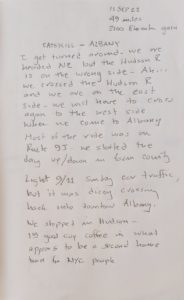 11 SEP 22
49 miles
2100 Elevation gain
CATSKILL - ALBANY
I get turned around - we are
headed NE but the Hudson R
is on the wrong side - Ah...
we crossed the Hudson R
and we are on the east
side - we will have to cross
again to the west side
when we come to Albany
Most of the ride was on
Route 9J we started the
day up/down in farm country
Light 9/11 Sunday car traffic,
but it was dicey crossing
back into downtown Albany.
We stopped in Hudson -
1st good cup coffee in what
appears to be a second home
town for NYC people